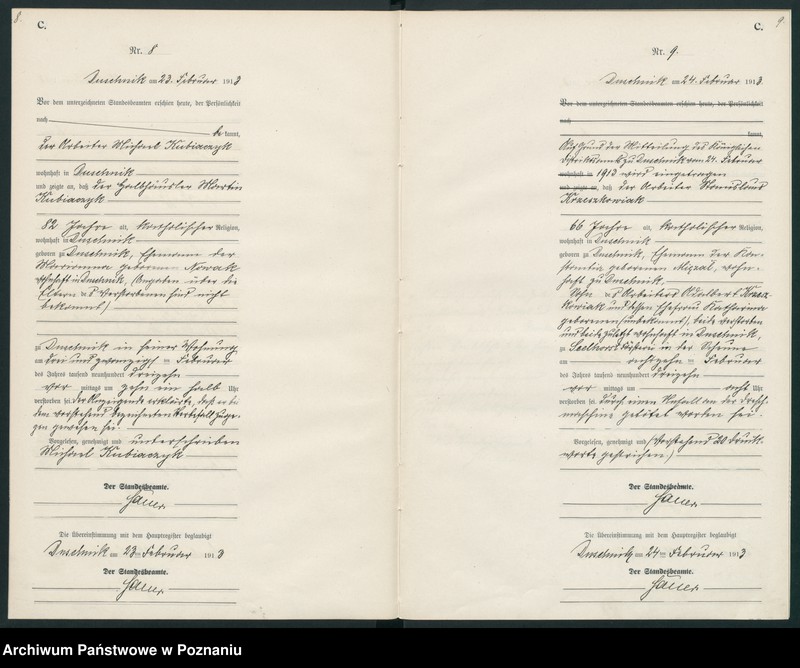 8.
C.
Nr. 8
Duschnik am 23. Februar 1913
Vor dem unterzeichneten Standesbeamten erschien heute, der Persönlichkeit
nach
be kannt,
der Arbeiter Michael Kubiaczyk
wohnhaft in Duschnik
und zeigte an, daß der Halbhäusler Martin
Kubiaczyk
82 Jahre alt, katholischer Religion,
wohnhaft in Duschnik
geboren zu Duschnik, Ehemann der
Marianna geborenen Nowak
wohnhaft in Duschnik, (Angaben über die
Eltern des Verstorbenen sind nicht
bekannt)
zu Duschnik in seiner Wohnung,
am drei und zwanzigsten Februar
des Jahres tausend neunhundert dreizehn
vor mittags um zehn ein halb Uhr
verstorben sei. Der Anzeigende erklärte, daß er bei
dem vorstehend bezeichneten Sterbefall zuge-
gen gewesen sei.
Vorgelesen, genehmigt und unterschrieben
Michael Kubiaczyk
Der Standesbeamte.
Die Übereinstimmung mit dem Hauptregister beglaubigt
Duschnik am 23. Februar 1913
Der Standesbeamte.
9.
C.
Nr. 9.
Duschnik am 24. Februar 1913.
Vor dem unterzeichneten Standesbeamten erschien heute, der Persönlichkeit
nach
kannt,
Auf Grund der Mitteilung des Königlichen
Distriktsamts zu Duschnik vom 24. Februar
wohnhaft in 1913 wird eingetragen
und zeigte an, daß der Arbeiter Stanislaus
Krzeszkowiak
66 Jahre alt, katholischer Religion,
wohnhaft in Duschnik
geboren zu Duschnik, Ehemann der Kon-
stantia geborenen wohn-
haft zu Duschnik,
Sohn des Arbeiters Adalbert Krzesz-
kowiak und dessen Ehefrau Katharina
geborenen (unbekannt), beide verstorben
und beide zuletzt wohnhaft in Duschnik,
zu in der Scheune
am achtzehn ten Februar
des Jahres tausend neunhundert dreizehn
vor mittags um acht Uhr
verstorben sei. durch einen Unfall an der Dresch-
maschine getötet worden sei.
Vorgelesen, genehmigt und (Vorstehend 20 Druck-
worte gestrichen.)
Der Standesbeamte.
Die Übereinstimmung mit dem Hauptregister beglaubigt
Duschnik am 24. Februar 1913
Der Standesbeamte.
Archiwum Państwowe w Poznaniu